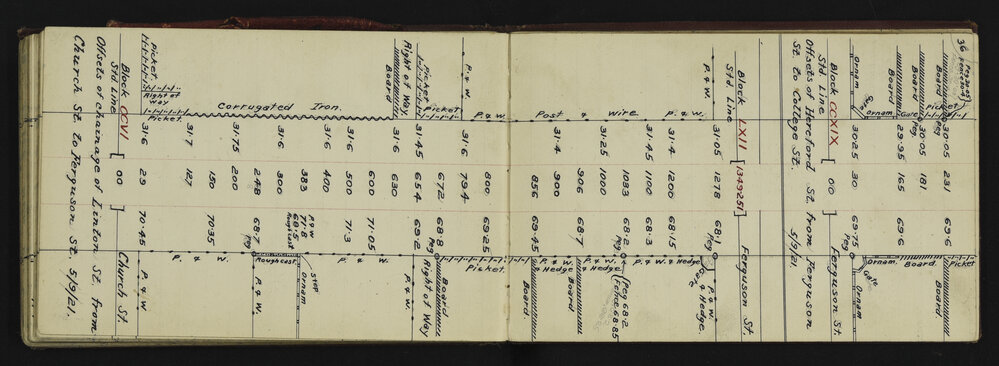 36
Peg 30.05
Fence 30.4
Picket
Board 30.05 231 69.6 Board
Board 30.05 181
Gate 29.95 165 69.6 Board.
Ornam
Gate
Ornam 30.25 30 69.75 Ornam. Gate Ornam
Peg
Block CCXIX 00 Ferguson St.
Std. Line
Offsets of Hereford St. from Ferguson
St. to College St. 5/9/21.
Block LXII [134925] Ferguson St.
Std. Line
P. & W. 31.05 1278 68.1 Gate P. & W. & Hedge.
Peg
P. & W. 31.4 1200 68.15 P. & W. & Hedge
31.45 1100 68.3
Wire 1083 68.2 Peg 68.2
Peg Fence 68.85
& 31.25 1000
Post 31.4 906 68.7 P. & W. & Hedge Board
900
856 69.45 P. & W. & Hedge Board.
P. & W. 800 69.25 Picket.
P. & W. 31.6 794
Picket 672 68.8 Board
Peg
Picket 31.45 654 69.2 Right of Way
Right of Way.
Board 31.6 630
600 71.05 P. & W.
31.6 500 71.3
Corrugated Iron. 31.6 400
383 P & W 71.8 Stop
68.5 Roughcast Ornam
31.6 300
248 68.7 Roughcast P. & W.
Peg
31.75 200
150 70.35 P. & W.
31.7 127
Picket. Right of Way
Picket. 31.6 29 70.45 P. & W.
Block CCVI 00 Church St.
Std. Line
Offsets of chainage of Linton St. from
Church St. to Ferguson St. 5/9/21.